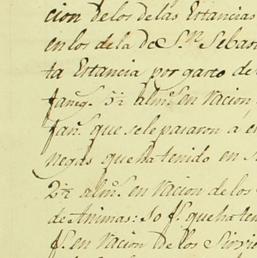 cion de los de las Estancias
en los de la de Sn. Sebas
ta Estancia por gasto de
faneg. 5½ alms. en racion,
fans. que se le pasaron a
negas que ha tenido en
2½ alms. en racion de los
de Animas: 50 fs. que ha ten
fs. en racion de los Sirvie